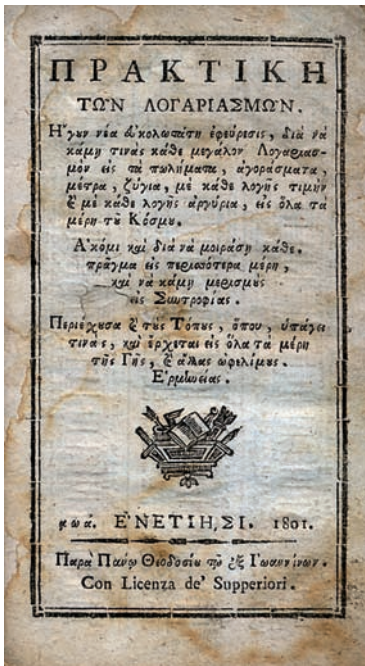 ΠΡΑΚΤΙΚΗ
ΤΩΝ ΛΟΓΑΡΙΑΣΜΩΝ.
Ἤγουν νέα εὐκολωτάτη ἐφεύρεσις, διὰ νὰ
κάμῃ τινὰς κάθε μεγάλον Λογαριασ-
μὸν εἰς τὰ πωλήματα, ἀγοράσματα,
μέτρα, ζύγια, μὲ κάθε λογῆς τιμὴν
ϗ μὲ κάθε λογῆς ἀργύρια, εἰς ὅλα τὰ
μέρη τοῦ Κόσμου.
Ἀκόμι καὶ διὰ νὰ μοιράσῃ κάθε.
πρᾶγμα εἰς περισσότερα μέρη,
καὶ νὰ κάμῃ μερισμοὺς
εἰς Συντροφίας.
Περιέχουσα ϗ τοὺς Τόπους, ὅπου, ὑπάγει
τινὰς, καὶ ἔρχεται εἰς ὅλα τὰ μέρη
τῆς Γῆς, ϗ ἄλλας ὠφελίμους.
Ἑρμηνείας.
αωά. ΕΝΕΤΙΗ͂ΣΙ. 1801.
Παρὰ Πάνῳ Θεοδοσίου τῷ ἐξ Ἰωαννίνων.
Con Licenza de' Supperiori.